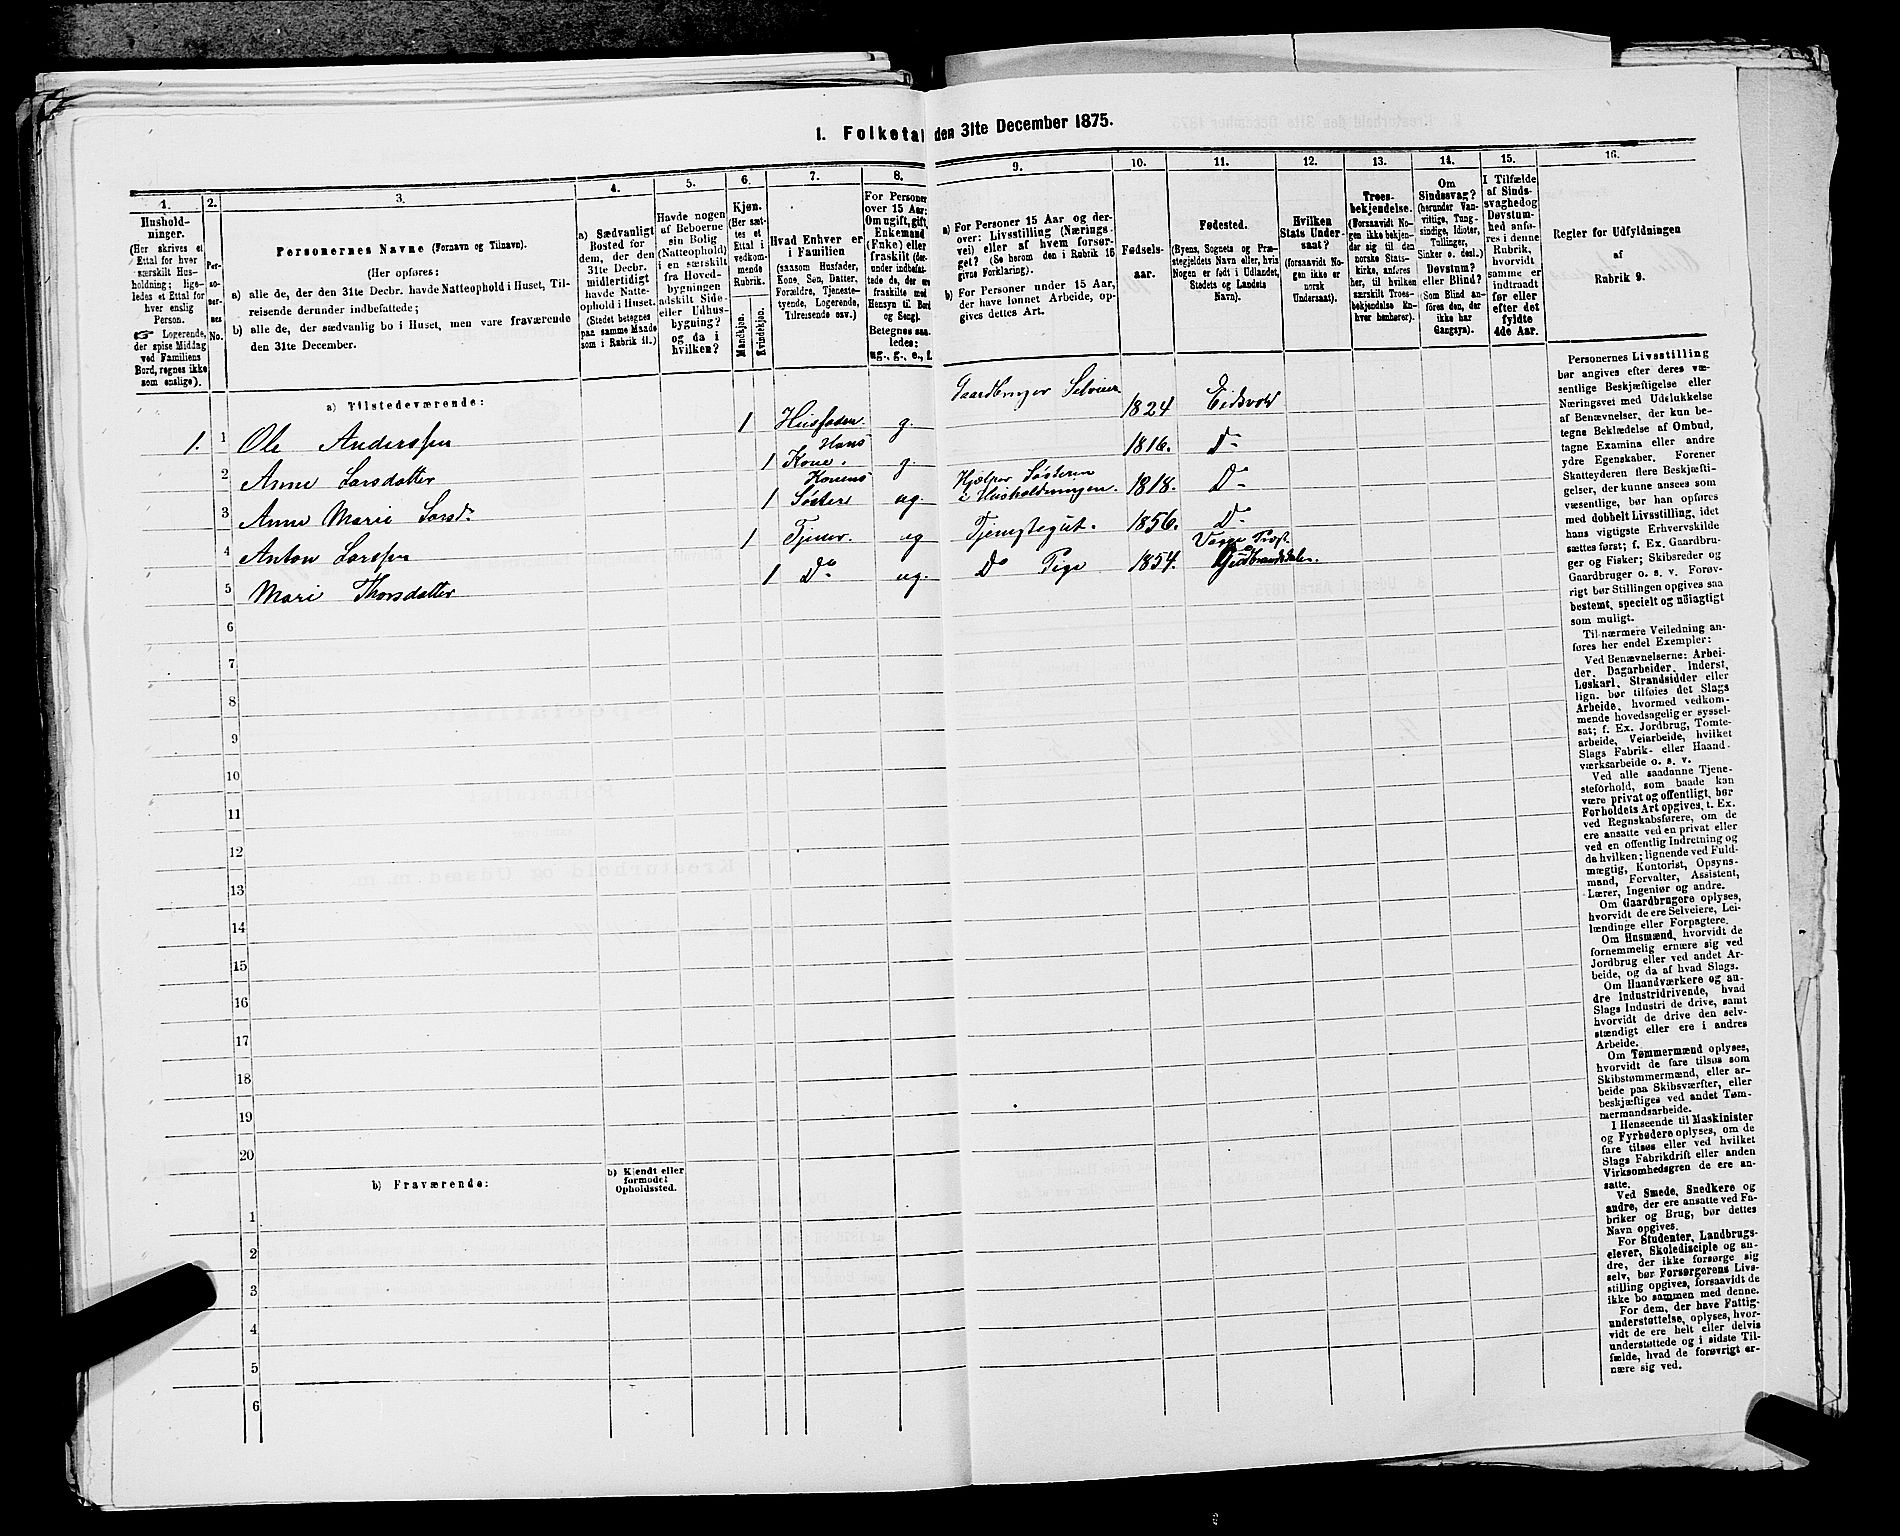 1. Folketal den 31te December 1875.
1. 2. 3. 4. 5. 6. 7. 8. 9. 10. 11. 12. 13. 14. 15. 16.
Hushold-
ninger.
(Her skrives et
Ettal for hver
særskilt Hus-
holdning; lige-
ledes et Ettal for
hver enslig
Person.
☞ Logerende,
der spise Middag
ved Familiens
Bord, regnes ikke
som enslige).
Per-
so-
ner-
nes
No.
Personernes Navne (Fornavn og Tilnavn).
(Her opføres:
a) alle de, der den 31te Decbr. havde Natteophold i Huset, Til-
reisende derunder indbefattede;
b) alle de, der sædvanlig bo i Huset, men vare fraværende
den 31te December.
a) Sædvanligt
Bosted for
dem, der den
31te Decbr.
midlertidigt
havde Natte-
ophold i Huset.
(Stedet betegnes
paa samme Maade
som i Rubrik 11.)
Havde nogen
af Beboerne
sin Bolig
(Natteophold)
i en særskilt
fra Hoved-
bygningen
adskilt Side-
eller Udhus-
bygning?
og da i
hvilken?
Kjøn.
(Her sæt-
tes et
Ettal i
vedkom-
mende
Rubrik.
Mandkjøn.
Kvindekjøn.
Hvad Enhver er
i Familien
(saasom Husfader,
Kone, Søn, Datter,
Forældre, Tjeneste-
tyende, Logerende,
Tilreisende osv.)
For Personer
over 15 Aar:
Om ugift, gift,
Enkemand
(Enke) eller
fraskilt (der-
under indbefat-
tede de, der ere
fraskilte med
Hensyn til Bord
og Seng).
Betegnes saa-
ledes:
ug., g., e., f.
a) For Personer 15 Aar og der-
over: Livsstilling (Nærings-
vei) eller af hvem forsør-
get? (Se herom den i Rubrik 16
givne Forklaring).
b) For Personer under 15 Aar,
der have lønnet Arbeide, op-
gives dettes Art.
Fødsels-
aar.
Fødested.
(Byens, Sognets og Præ-
stegjeldets Navn eller, hvis
Nogen er født i Udlandet,
Stedets og Landets
Navn).
Hvilken
Stats Under-
saat?
(forsaavidt No-
gen ikke er
norsk
Undersaat).
Troes-
bekjendelse.
(Forsaavidt No-
gen ikke bekjen-
der sig til den
norske Stats-
kirke, anføres
her, til hvilken
særskilt Troes-
bekjendelse En-
hver henhører).
Om
Sindssvag?
(herunder Van-
vittige, Tung-
sindige, Idioter,
Tullinger,
Sinker o. desl.)
Døvstum?
eller Blind?
(Som Blind an-
føres den, der
ikke har
Gangsyn).
I Tilfælde
af Sinds-
svaghed og
Døvstum-
hed anfø-
res i denne
Rubrik,
hvorvidt
samme er
indtraadt
før eller
efter det
fyldte
4de Aar.
Regler for Udfyldningen
af
Rubrik 9.
a) Tilstedeværende:
1. 1 Ole Anderssen 1 Husfader. g. Gaardbruger Selveier 1824 Eidsvold
2 Anne Larsdatter 1 Hans Kone. g. 1816. Do
3 Anne Marie Larsd. 1 Konens Søster ug. Hjælper Søsteren i Husholdningen. 1818. Do
4 Anton Larssen 1 Tjener. ug Tjenstegut. 1856. Do
5 Mari Thorsdatter 1 Do ug. Do Pige 1854. Gudbrandsdalen.
6
7
8
9
10
11
12
13
14
15
16
17
18
19
20
b) Fraværende:
b) Kjendt eller
formodet
Opholdssted.
1
2
3
4
5
6
Personernes Livsstilling
bør angives efter deres væ-
sentlige Beskjæftigelse eller
Næringsvei med Udelukkelse
af Benævnelser, der kun be-
tegne Beklædelse af Ombud,
tagne Examina eller andre
ydre Egenskaber. Forener
Skatteyderen flere Beskjæfti-
gelser, der kunne ansees som
væsentlige, bør han opføres
med dobbelt Livsstilling, idet
hans vigtigste Erhvervskilde
sættes først; f. Ex. Gaardbru-
ger og Fisker; Skibsreder og
Gaardbruger o. s. v. Forøv-
rigt bør Stillingen opgives saa
bestemt, specielt og nöiagtigt
som muligt.
Til nærmere Veiledning an-
føres her endel Exempler:
Ved Benævnelserne: Arbei-
der, Dagarbeider, Inderst,
Løskarl, Strandsidder eller
lign. bør tilføies det Slags
Arbeide, hvormed vedkom-
mende hovedsagelig er syssel-
sat; f. Ex. Jordbrug, Tomte-
arbeide, Veiarbeide, hvilket
Slags Fabrik- eller Haand-
værksarbeide o. s. v.
Ved alle saadanne Tjene-
steforhold, som baade kan
være privat og offentligt, bør
Forholdets Art opgives, t. Ex.
ved Regnskabsførere, om de
ere ansatte ved en privat eller
ved en offentlig Indretning og
da hvilken; lignende ved Fuld-
mægtig, Kontorist, Opsyns-
mand, Forvalter, Assistent,
Lærer, Ingeniør og andre.
Om Gaardbrugere oplyses,
hvorvidt de ere Selveiere, Lei-
lændinge eller Forpagtere.
Om Husmænd, hvorvidt de
fornemmelig ernære sig ved
Jordbrug eller ved andet Ar-
beide, og da af hvad Slags.
Om Haandværkere og an-
dre Industridrivende, hvad
Slags Industri de drive, samt
hvorvidt de drive den selv-
stændigt eller ere i andres
Arbeide.
Om Tømmermænd oplyses,
hvorvidt de fare tilsøs som
Skibstømmermænd, eller ar-
beide paa Skibsværfter, eller
beskjæftiges ved andet Tøm-
mermandsarbeide.
I Henseende til Maskinister
og Fyrbødere oplyses, om de
fare tilsøs eller ved hvilket
Slags Fabrikdrift eller anden
Virksomhedsgren de ere an-
satte.
Ved Smede, Snedkere og
andre, der ere ansatte ved Fa-
briker og Brug, bør dettes
Navn opgives.
For Studenter, Landbrugs-
elever, Skoledisciple og an-
dre, der ikke forsørge sig
selv, bør Forsørgerens Livs-
stilling opgives, forsaavidt de
ikke bo sammen med denne.
For dem, der have Fattig-
understøttelse, oplyses, hvor-
vidt de ere helt eller delvis
understøttede og i sidste Til-
fælde, hvad de forøvrigt er-
nære sig ved.